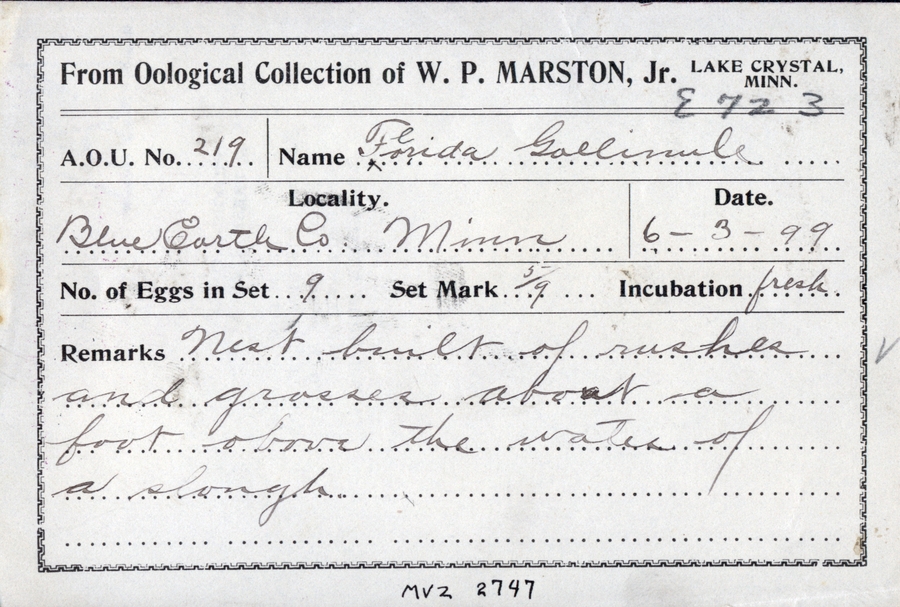 From Oological Collection of W. P. MARSTON, Jr. LAKE CRYSTAL, MINN.
E 7 2 3
A.O.U. No. 219 Name Florida Gallinule
Locality. Date.
Blue Earth Co. Minn 6-3-99
No. of Eggs in Set 9 Set Mark 5/9 Incubation fresh
Remarks Nest built of rushes
and grasses about a
foot above the water of
a slough
MVZ 2747